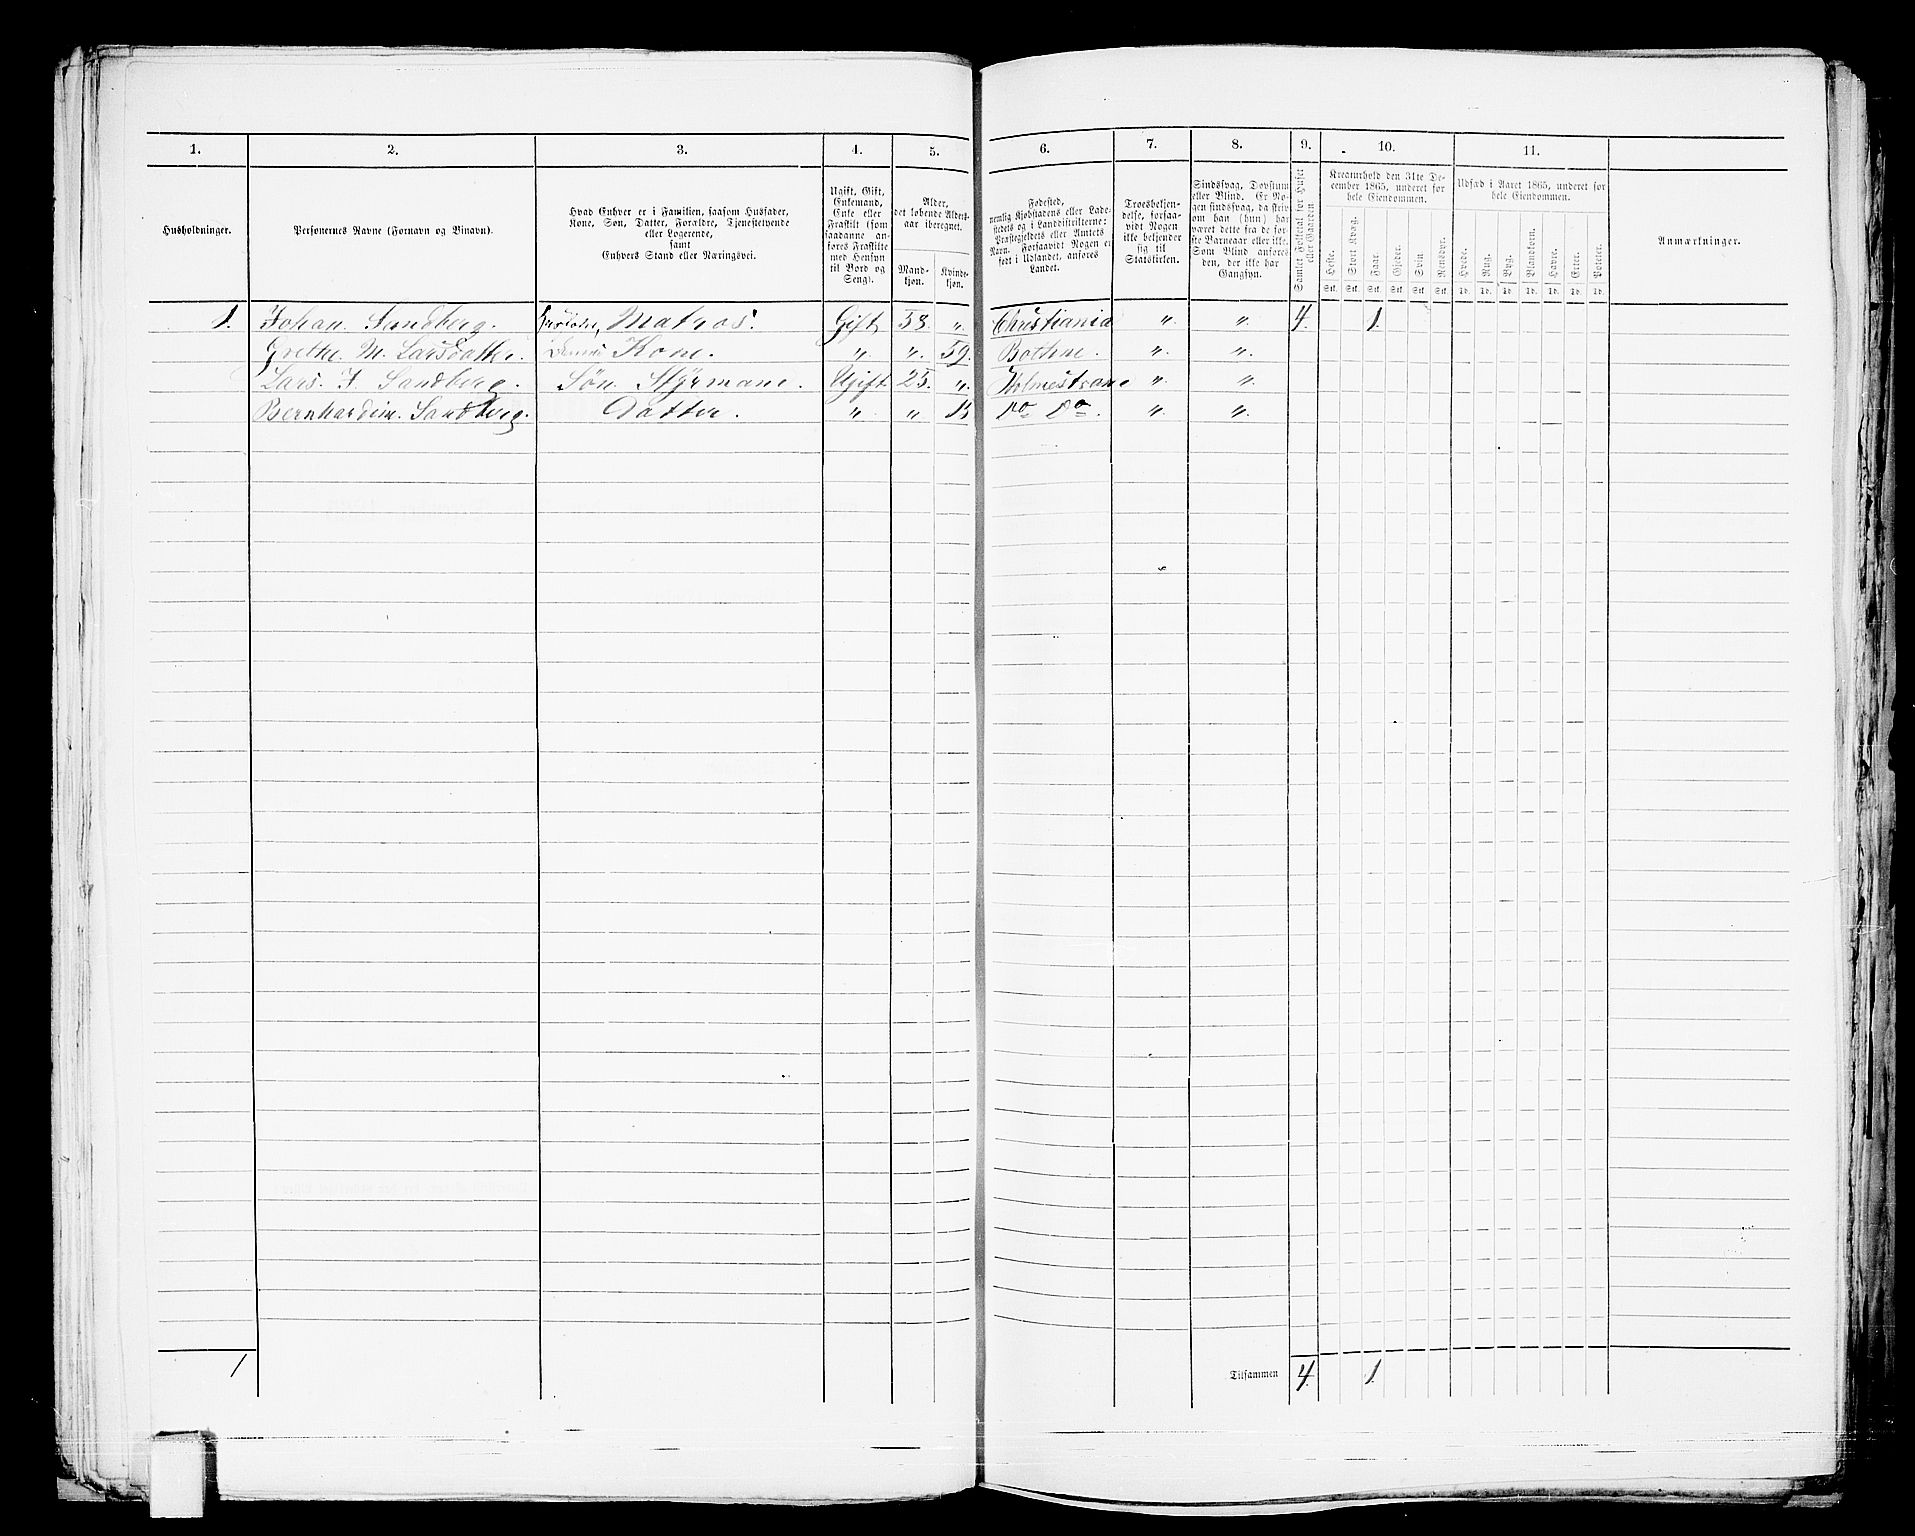 1. 2. 3. 4. 5. 6. 7. 8. 9. 10. 11.
Husholdninger.
Personernes Navne (Fornavn og Binavn).
Hvad Enhver er i Familien, saasom Husfader,
Kone, Søn, Datter, Forældre, Tjenestetyende
eller Logerende,
samt
Enhvers Stand eller Næringsvei.
Ugift, Gift,
Enkemand,
Enke eller
Fraskilt (som
saadanne an-
føres Fraskilte
med Hensyn
til Bord og
Seng).
Alder,
det løbende Alders-
aar iberegnet.
Mand-
kjøn.
Kvinde-
kjøn.
Fødested,
nemlig Kjøbstadens eller Lade-
stedets og i Landdistrikterne:
Præstegjeldets eller Amtets
Navn. Forsaavidt Nogen er
født i Udlandet, anføres
Landet.
Troesbekjen-
delse, forsaa-
vidt Nogen
ikke bekjender
sig til
Statskirken.
Sindssvag, Døvstum
eller Blind. Er No-
gen sindssvag, da skriv
om han (hun) har
været dette fra de før-
ste Barneaar eller ikke.
Som Blind anføres
den, der ikke har
Gangsyn.
Samlet Folketal for Huset
eller Gaarden
Kreaturhold den 31te De-
cember 1865, underet for
hele Eiendommen.
Heste. Stort Kvæg. Faar. Gjeder. Svin Rensdyr.
Stk. Stk. Stk. Stk. Stk. Stk.
Udsæd i Aaret 1865, underet for
hele Eiendommen.
Hvede. Rug. Byg. Blandkorn. Havre. Erter. Poteter.
Td. Td. Td. Td. Td. Td. Td.
Anmærkninger.
1. Johan Sandberg. Husfader, Matros. Gift 53. „ Christiania „ „ 4. 1.
Grethe. M. Larsdatter. Kone. „ „ 59. Bothne. „ „
Lars. J. Sandberg. Søn. Styrmand. Ugift 25. „ Holmestrand „ „
Bernhardine. Sandberg. Datter. „ „ 13 Do Do. „ „
1 Tilsammen 4. 1.